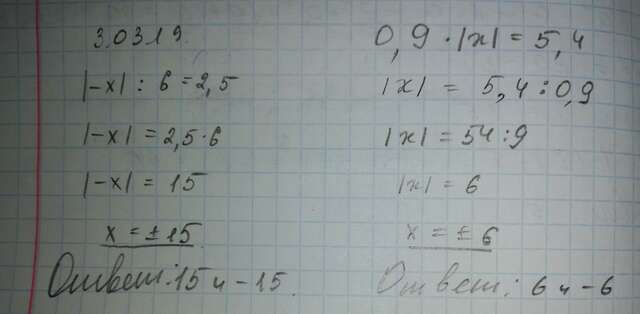 3.0319.
|-x| : 6 = 2,5
|-x| = 2,5·6
|-x| = 15
x = ±15
Ответ: 15 и -15.
0,9·|x| = 5,4
|x| = 5,4:0,9
|x| = 54:9
|x| = 6
x = ±6
Ответ: 6 и -6